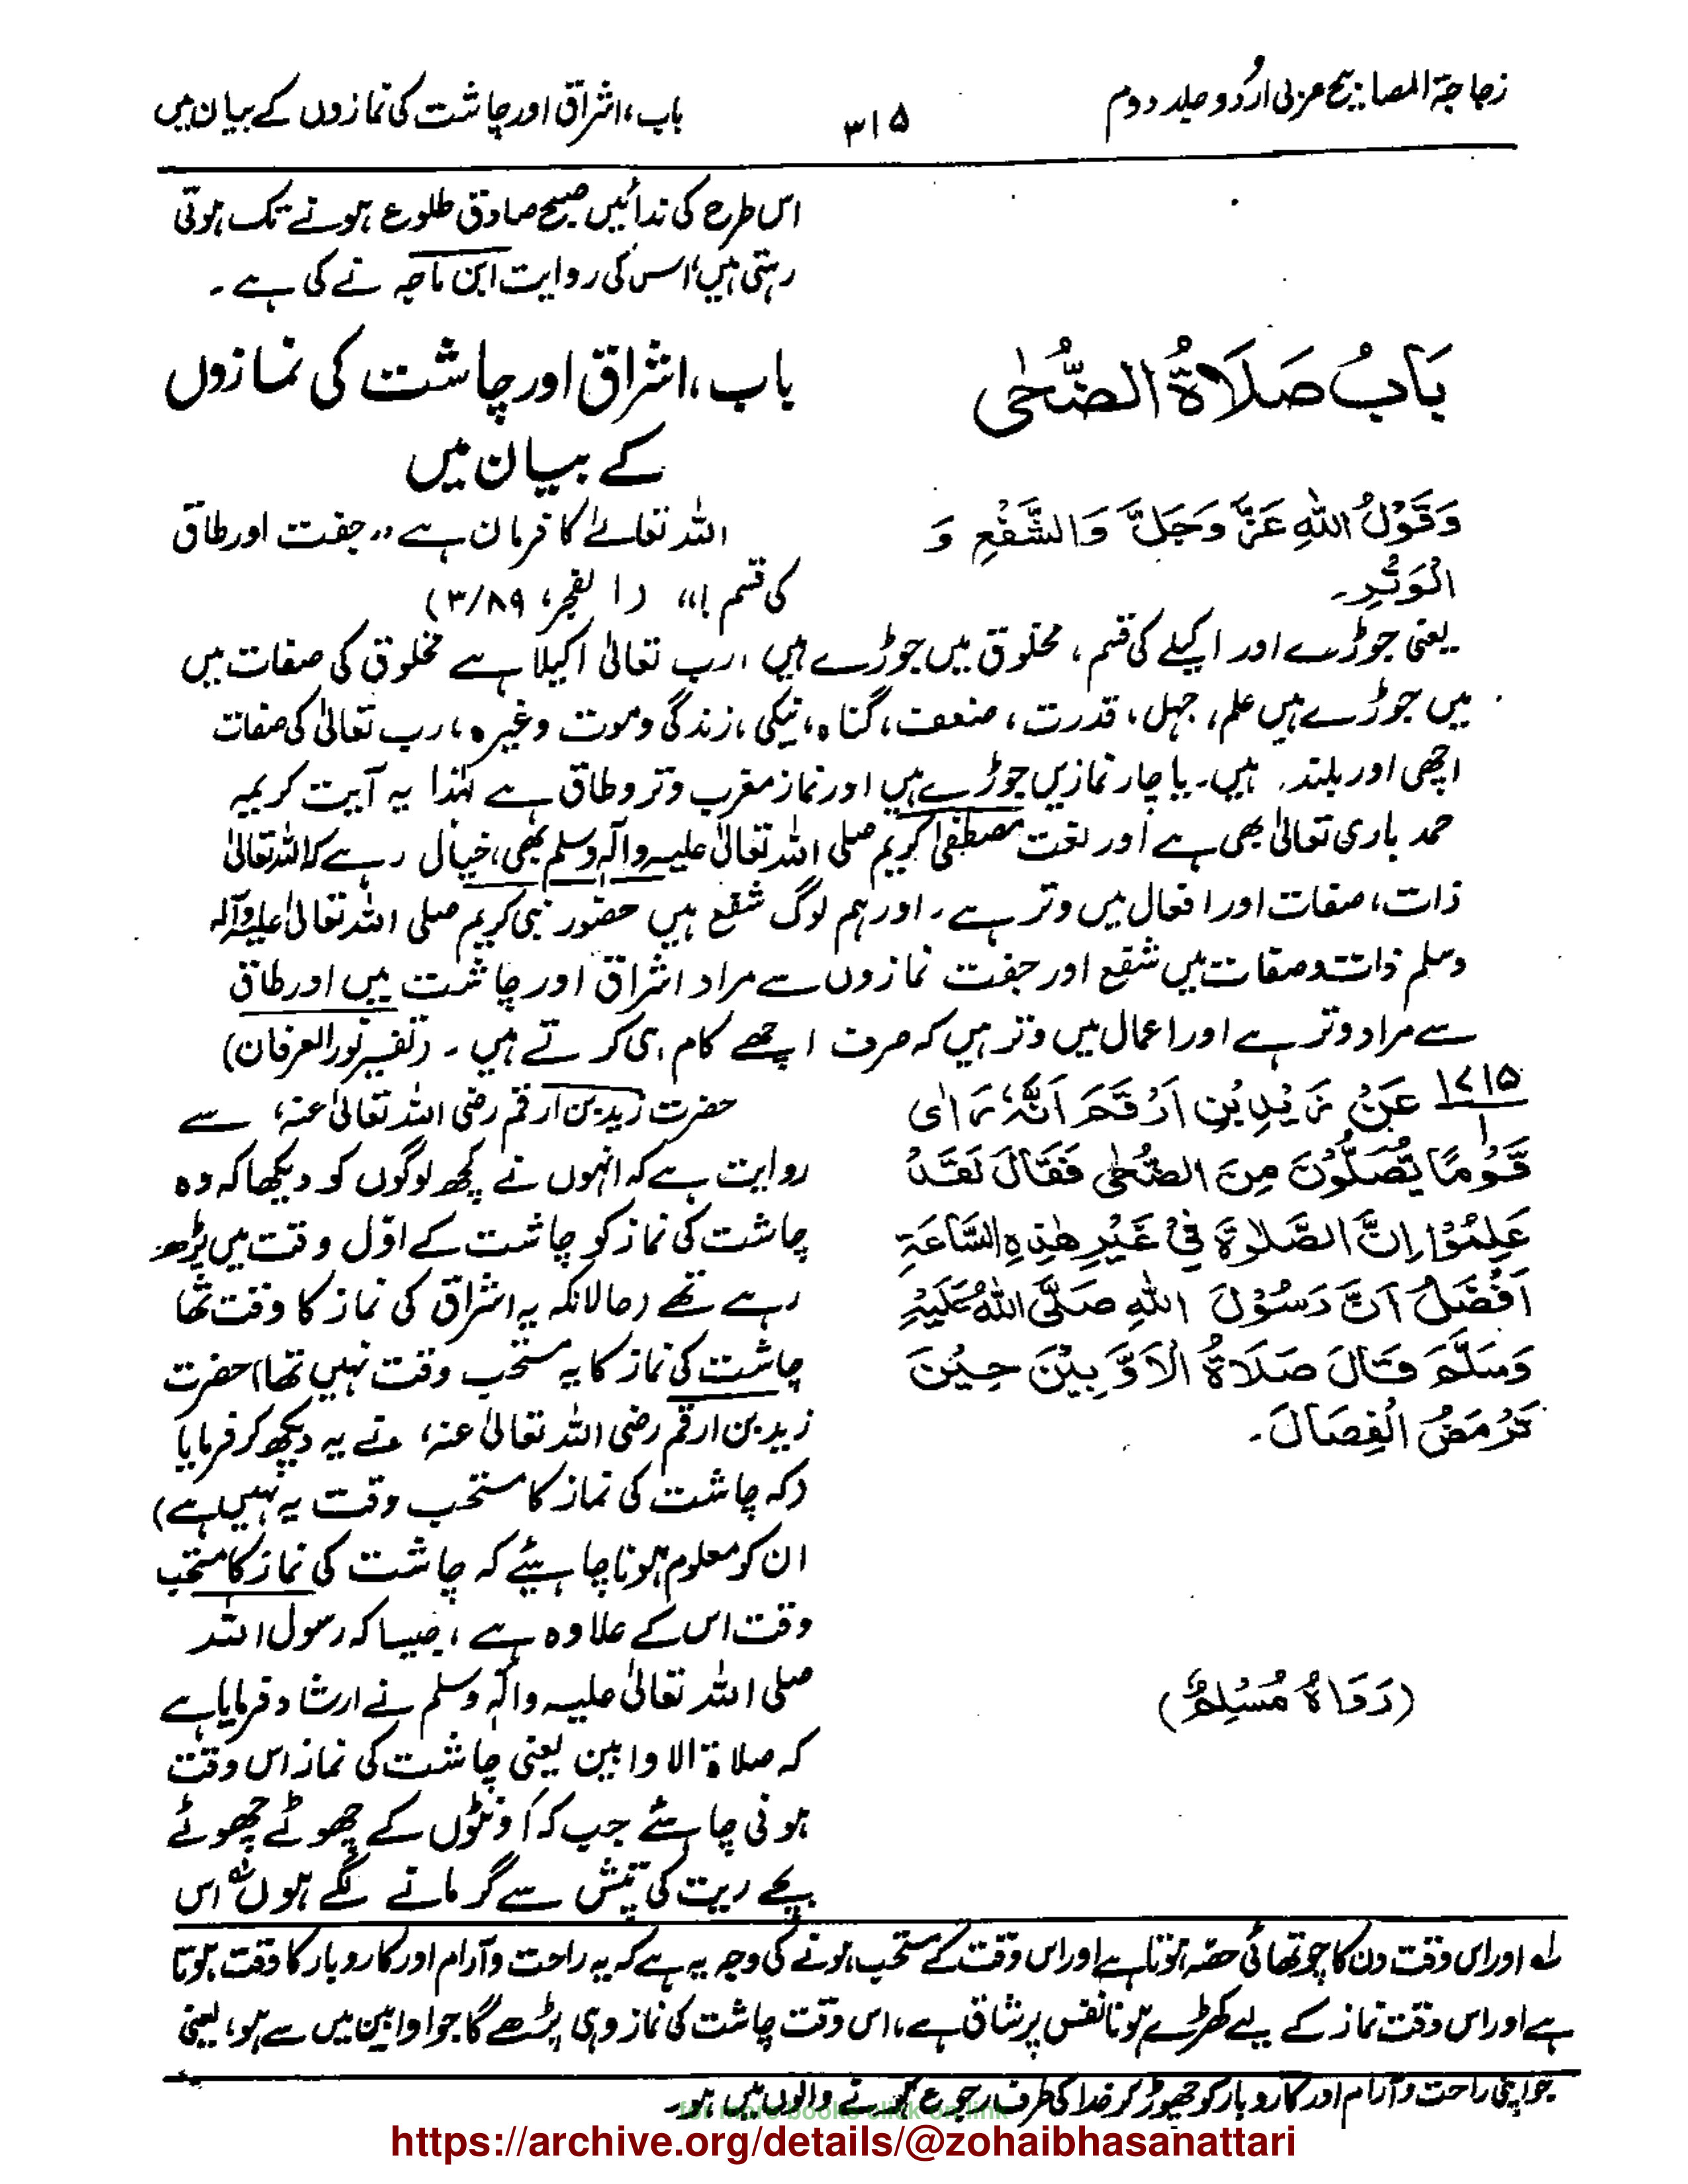 زجاجۃ المصابیح عربی اُردو جلد دوم
۳۱۵
باب، اشراق اور چاشت کی نمازوں کے بیان میں
اس طرح کی ندائیں صبح صادق طلوع ہونے تک ہوتی
رہتی ہیں، اس کی روایت ابن ماجہ نے کی ہے۔
بَابُ صَلَاةُ الضُّحٰی
باب، اشراق اور چاشت کی نمازوں
کے بیان میں
وَقَوْلُ اللهِ عَزَّ وَجَلَّ وَالشَّفْعِ وَ
الْوَتْرِ۔
اللہ تعالےٰ کا فرمان ہے ،،جفت اور طاق
کی قسم !،، (الفجر، ۳/۸۹)
یعنی جوڑے اور اکیلے کی قسم، مخلوق میں جوڑے ہیں، رب تعالیٰ اکیلا ہے مخلوق کی صفات میں
میں جوڑے ہیں علم، جہل، قدرت، ضعف، گناہ، نیکی، زندگی و موت وغیرہ، رب تعالیٰ کی صفات
اچھی اور بلند ہیں۔ یا چار نمازیں جوڑے ہیں اور نماز مغرب وتر و طاق ہے لہٰذا یہ آیت کریمہ
حمد باری تعالیٰ بھی ہے اور نعت مصطفیٰ کریم صلی اللہ تعالیٰ علیہ وآلہ وسلم بھی، خیال رہے کہ اللہ تعالیٰ
ذات، صفات اور افعال میں وتر ہے۔ اور ہم لوگ شفع ہیں حضور نبی کریم صلی اللہ تعالیٰ علیہ وآلہ
وسلم ذات و صفات میں شفع اور جفت نمازوں سے مراد اشراق اور چاشت ہیں اور طاق
سے مراد وتر ہے اور اعمال میں وتر ہیں کہ صرف اچھے کام ہی کرتے ہیں۔ (تفسیر نور العرفان)
۱۷۱۵
۱
عَنْ زَيْدِ بْنِ اَرْقَمَ اَنَّهٗ رَاٰى
قَوْمًا يُّصَلُّوْنَ مِنَ الضُّحٰى فَقَالَ لَقَدْ
عَلِمُوْا اِنَّ الصَّلٰوةَ فِيْ غَيْرِ هٰذِهِ السَّاعَةِ
اَفْضَلُ اَنَّ رَسُوْلَ اللهِ صَلَّى اللهُ عَلَيْهِ
وَسَلَّمَ قَالَ صَلَاةُ الْاَوَّابِيْنَ حِيْنَ
تَرْمَضُ الْفِصَالَ۔
(رَوَاهُ مُسْلِمٌ)
حضرت زید بن ارقم رضی اللہ تعالیٰ عنہ، سے
روایت ہے کہ انہوں نے کچھ لوگوں کو دیکھا کہ وہ
چاشت کی نماز کو چاشت کے اوّل وقت میں پڑھ
رہے تھے (حالانکہ یہ اشراق کی نماز کا وقت تھا
چاشت کی نماز کا یہ مستحب وقت نہیں تھا) حضرت
زید بن ارقم رضی اللہ تعالیٰ عنہ، نے یہ دیکھ کر فرمایا
(کہ چاشت کی نماز کا مستحب وقت یہ نہیں ہے)
ان کو معلوم ہونا چاہیئے کہ چاشت کی نماز کا مستحب
وقت اس کے علاوہ ہے، جیسا کہ رسول اللہ
صلی اللہ تعالیٰ علیہ وآلہٖ وسلم نے ارشاد فرمایا ہے
کہ صلاۃ الاوابین یعنی چاشت کی نماز اس وقت
ہونی چاہئے جب کہ اُونٹوں کے چھوٹے چھوٹے
بچے ریت کی تپش سے گرمانے لگے ہوں لہ اس
لہ اور اس وقت دن کا چوتھائی حصّہ ہوتا ہے اور اس وقت کے مستحب ہونے کی وجہ یہ ہے کہ یہ راحت وآرام اور کاروبار کا وقت ہوتا
ہے اور اس وقت نماز کے لیے کھڑے ہونا نفس پر شاق ہے، اس وقت چاشت کی نماز وہی پڑھے گا جو اوابین میں سے ہو، یعنی
جو اپنی راحت وآرام اور کاروبار کو چھوڑ کر خدا کی طرف رجوع کرنے والوں میں ہو۔
for more books click on link
https://archive.org/details/@zohaibhasanattari